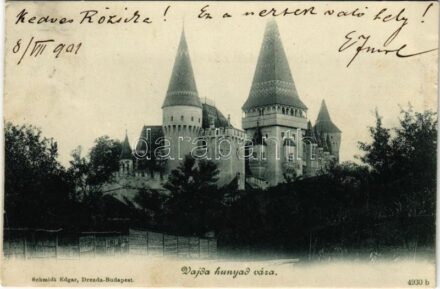 Kedves Rózsika! Ez a nektek való hely!
8/VII 901
Emil
darabanth
Vajda hunyad vára.
Schmidt Edgar, Drezda-Budapest.
4930 b